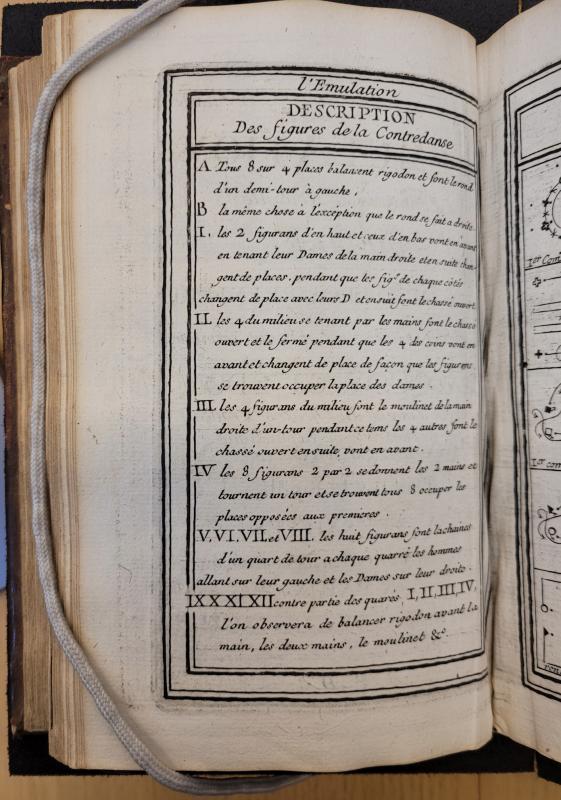 l'Emulation
DESCRIPTION
Des figures de la Contredanse
A Tous 8 sur 4 places balancent rigodon et font le rond
d'un demi-tour à gauche,
B la même chose à l'excéption que le rond se fait a droite.
I. les 2 figurans d'en haut et ceux d'en bas vont en avant
en tenant leur Dames de la main droite et en suite chan-
gent de places. pendant que les figs de chaque côtés
changent de place avec leurs D et ensuit font le chassé ouvert.
II. les 4 du milieu se tenant par les mains font le chassé
ouvert et le fermé pendant que les 4 des coins vont en
avant et changent de place de façon que les figurans
se trouvent occuper la place des dames.
III. les 4 figurans du milieu font le moulinet de la main
droite d'un-tour pendant ce tems les 4 autres font le
chassé ouvert ensuite, vont en avant.
IV les 8 figurans 2 par 2 se donnent les 2 mains et
tournent un tour et se trouvent tous 8 occuper les
places opposées aux premieres.
V, VI, VII et VIII. les huit figurans font la chaines
d'un quart de tour a chaque quarré les hommes
allant sur leur gauche et les Dames sur leur droite.
IX X XI XII contre partie des quarés, I, II, III, IV,
l'on observera de balancer rigodon avant la
main, les deux mains, le moulinet &c.
1er
1er